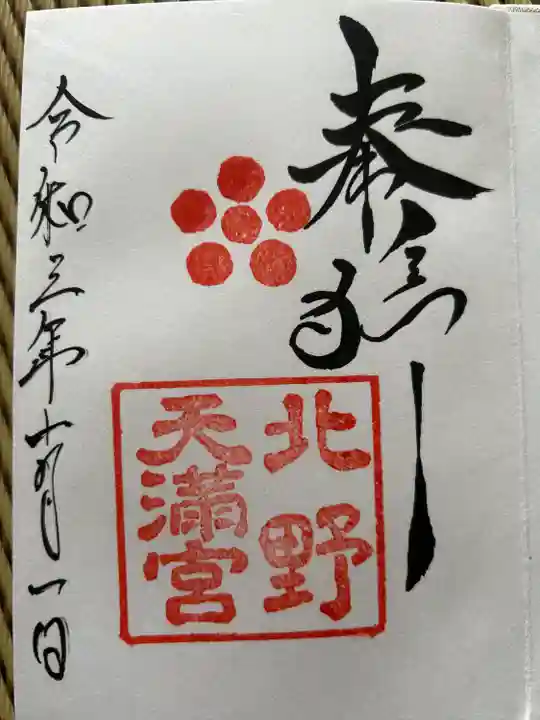 奉拝
北野
天満宮
令和三年十一月一日